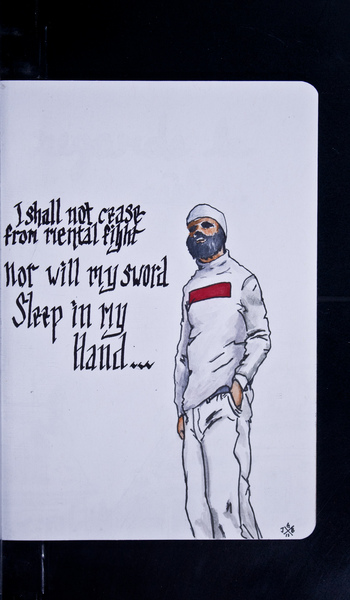 I shall not cease
from mental fight
nor will my sword
Sleep in my
Hand...